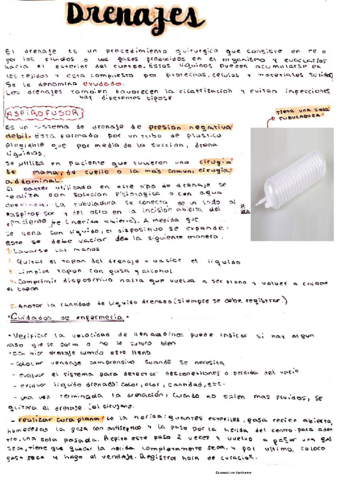 Drenajes
El drenaje es un procedimiento quirurgico que consiste en
los fluidos o los gases producidos en el organismo y evacuarlos
hacia el exterior del cuerpo. Estos liquidos pueden acumularse en
los tejidos y esta compuesto por proteinas, celulas y materiales
Se le denomina exudados.
Los drenajes tambien favorecen la cicatrización y evitan infecciones
hay diferentes tipos
ASPIROFUSOR
tiene una sola
tubuladura
Es un sistema de drenaje de presión negativa
debil. Esta formada por un tubo de plastico
plegable que por medio de la succion, drena
liquidos.
Se utiliza en paciente que tuvieron una cirugia
de mama, de cuello o la más común, cirugia
abdominal.
utilizado en este tipo de drenaje se
con solucion fisiologica o con agua
La tubuladura se conecta de un lado al
aspirofusor y del otro a la incisión abierta del
A medida que
se llena con liquido, el dispositivo se expande.
este se debe vaciar de la siguiente manera.
1. Lavarse las manos
2. Quitar el tapon del drenaje y vaciar el liquido
3. Limpiar tapon con gasa y alcohol
Comprimir dispositivo hasta que vuelva a ser plano y volver a colocar
el tapon
Anotar la cantidad de liquido drenado (siempre se debe registrar)
Cuidados de enfermeria
- Verificar la velocidad de llenado, nos puede indicar si hay algun
vaso que se corto o no se suturo bien
drenaje cuando este lleno
- colocar vendaje compresivo cuando se necesita
- evaluar el sistema para detectar desconexiones o perdida del vacio
- evaluar liquido drenado: color, olor, cantidad, etc.
- una vez terminada la cuando no salen mas fluidos, se
quitara el drenaje (el cirujano).
- realizar cura plana de la herida: guantes esteriles, gasa recien abierta,
la gasa con antiseptico y la paso por la herida del centro para aden-
tro, una sola pasada. Repito este paso 2 veces y vuelvo a pasar una gasa
seca, tiene que quedar la herida completamente seca y por ultimo, coloco
gasa seca y hago el vendaje. Registro hora de curación.